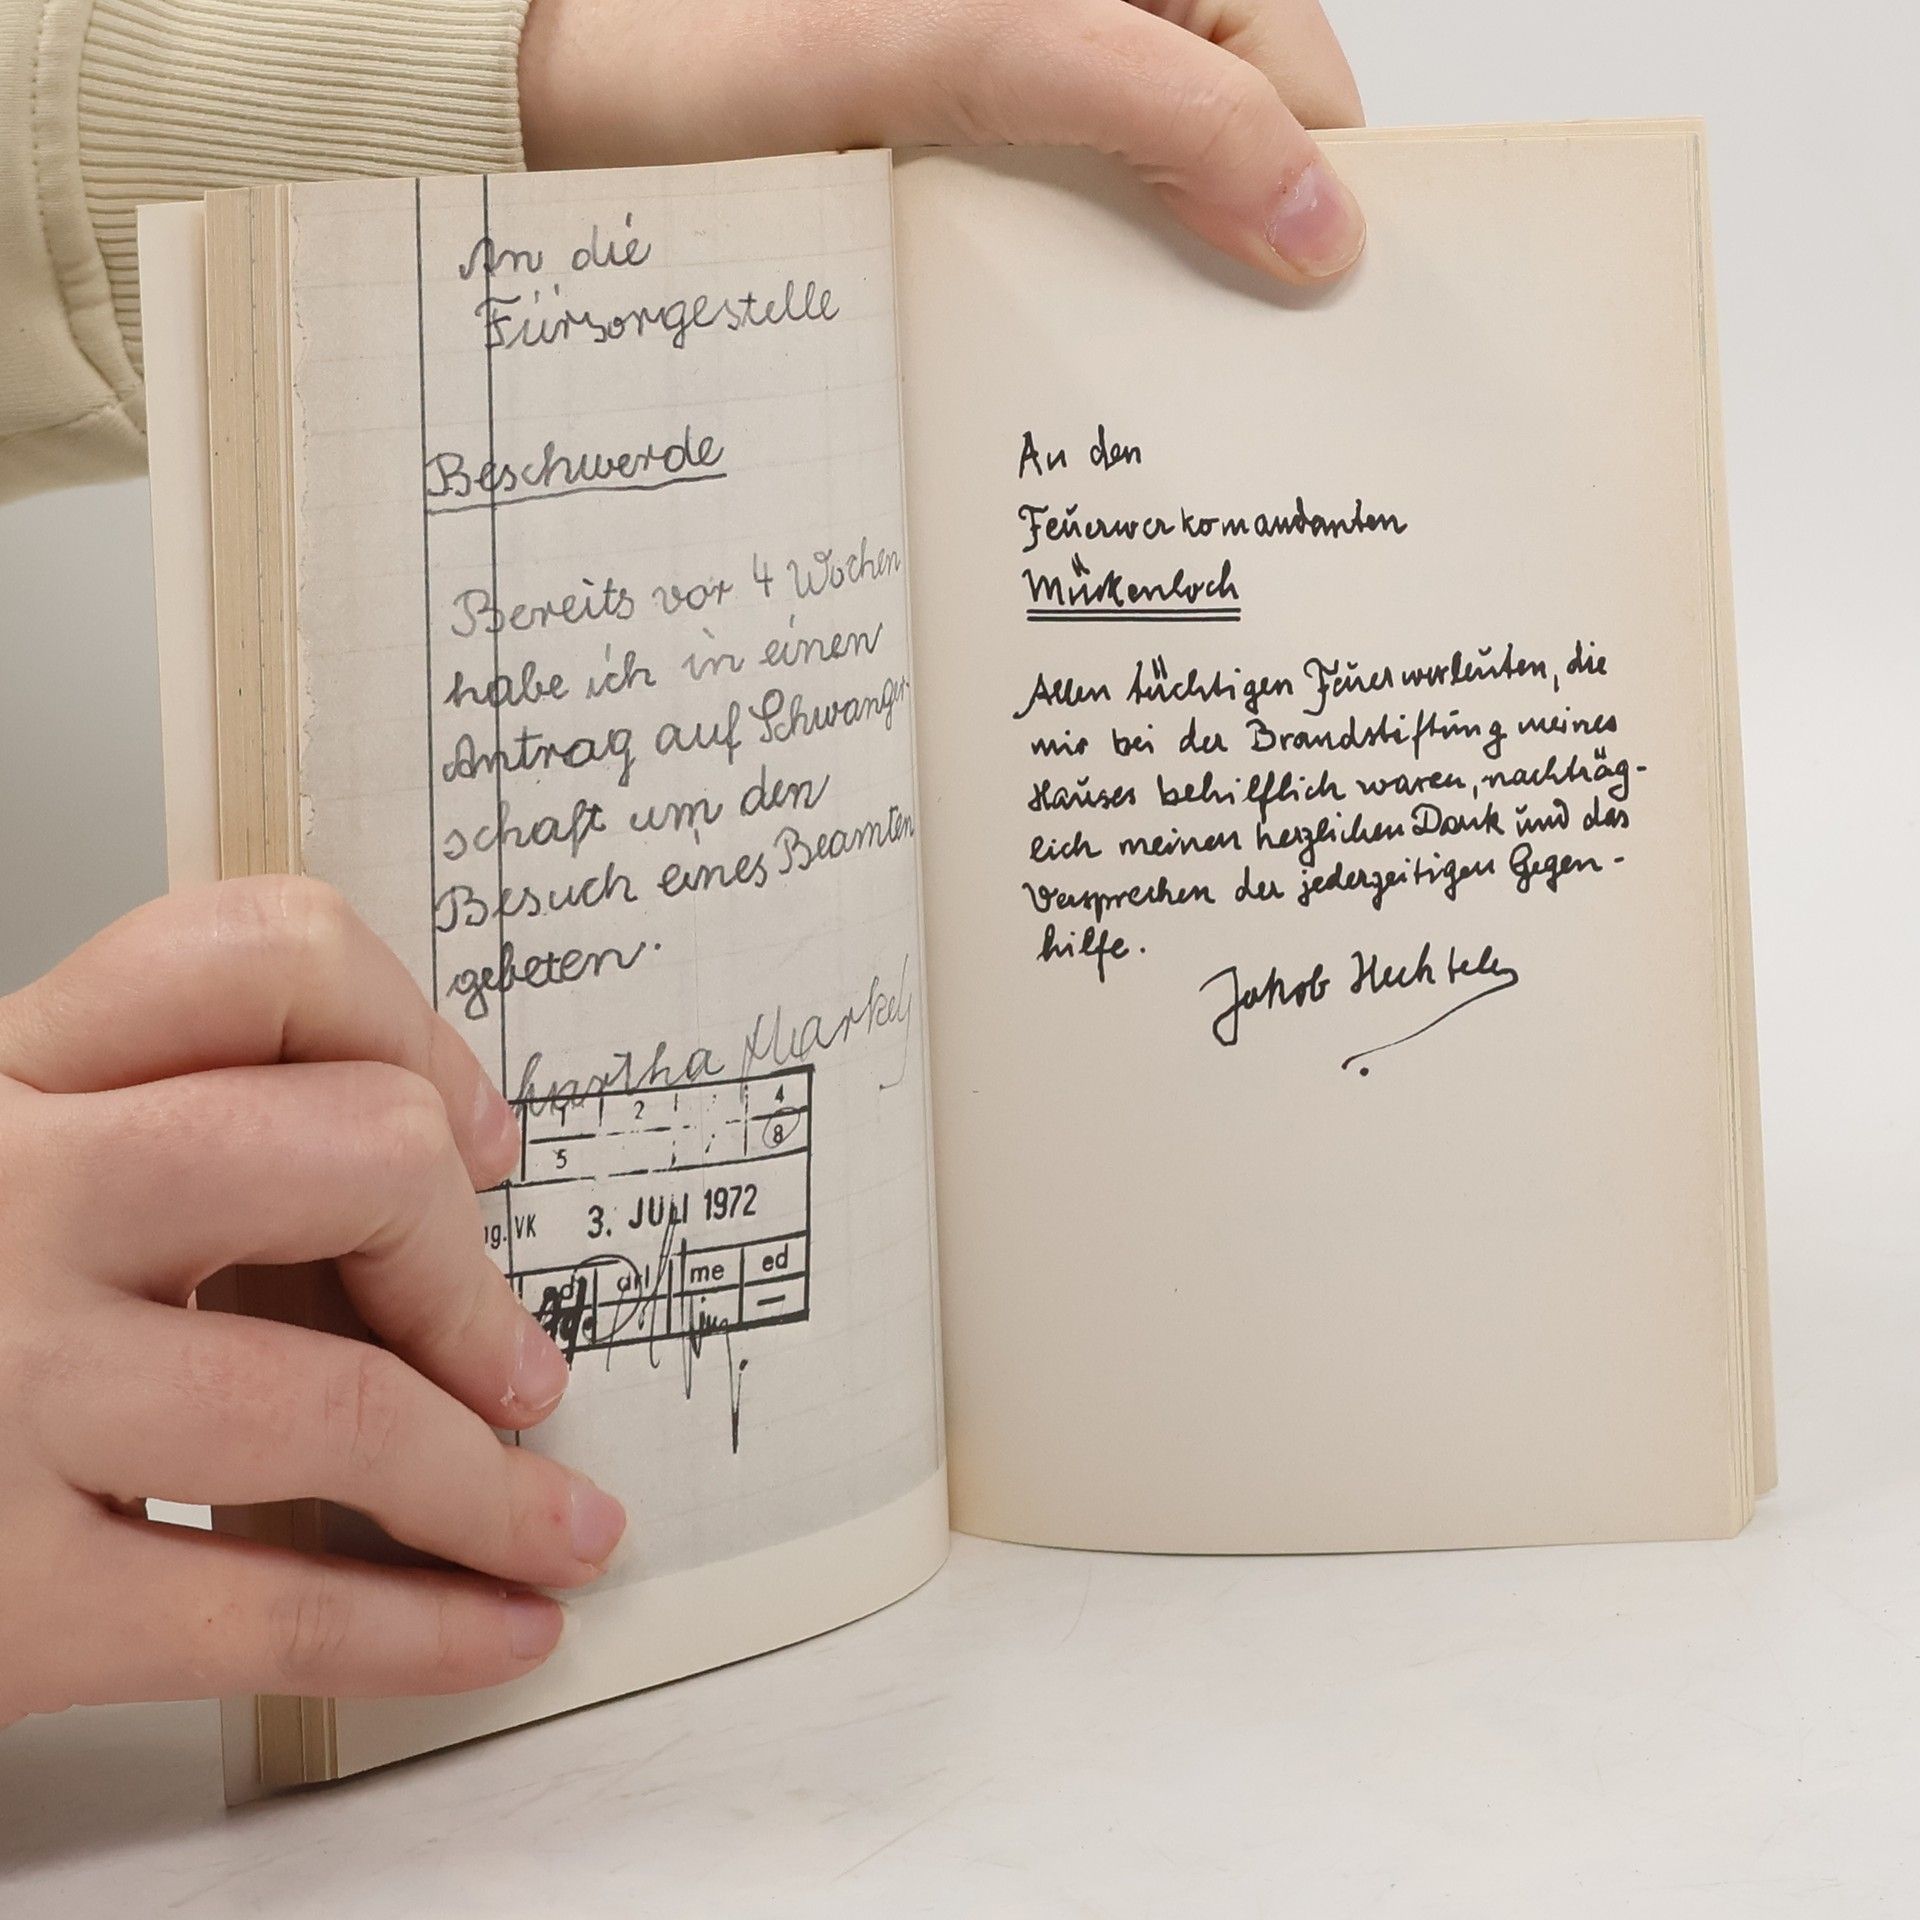 An die
Fürsorgestelle
Beschwerde
Bereits vor 4 Wochen
habe ich in einen
Antrag auf Schwanger-
schaft um den
Besuch eines Beamten
gebeten.
Martha
1 2 4
5 8
VK 3. JULI 1972
me ed
An den
Feuerwerkomandanten
Mückenloch
Allen tüchtigen Feuerwerleuten, die
mir bei der Brandstiftung meines
Hauses behilflich waren, nachträg-
lich meinen herzlichen Dank und das
Versprechen der jederzeitigen Gegen-
hilfe.
Jakob